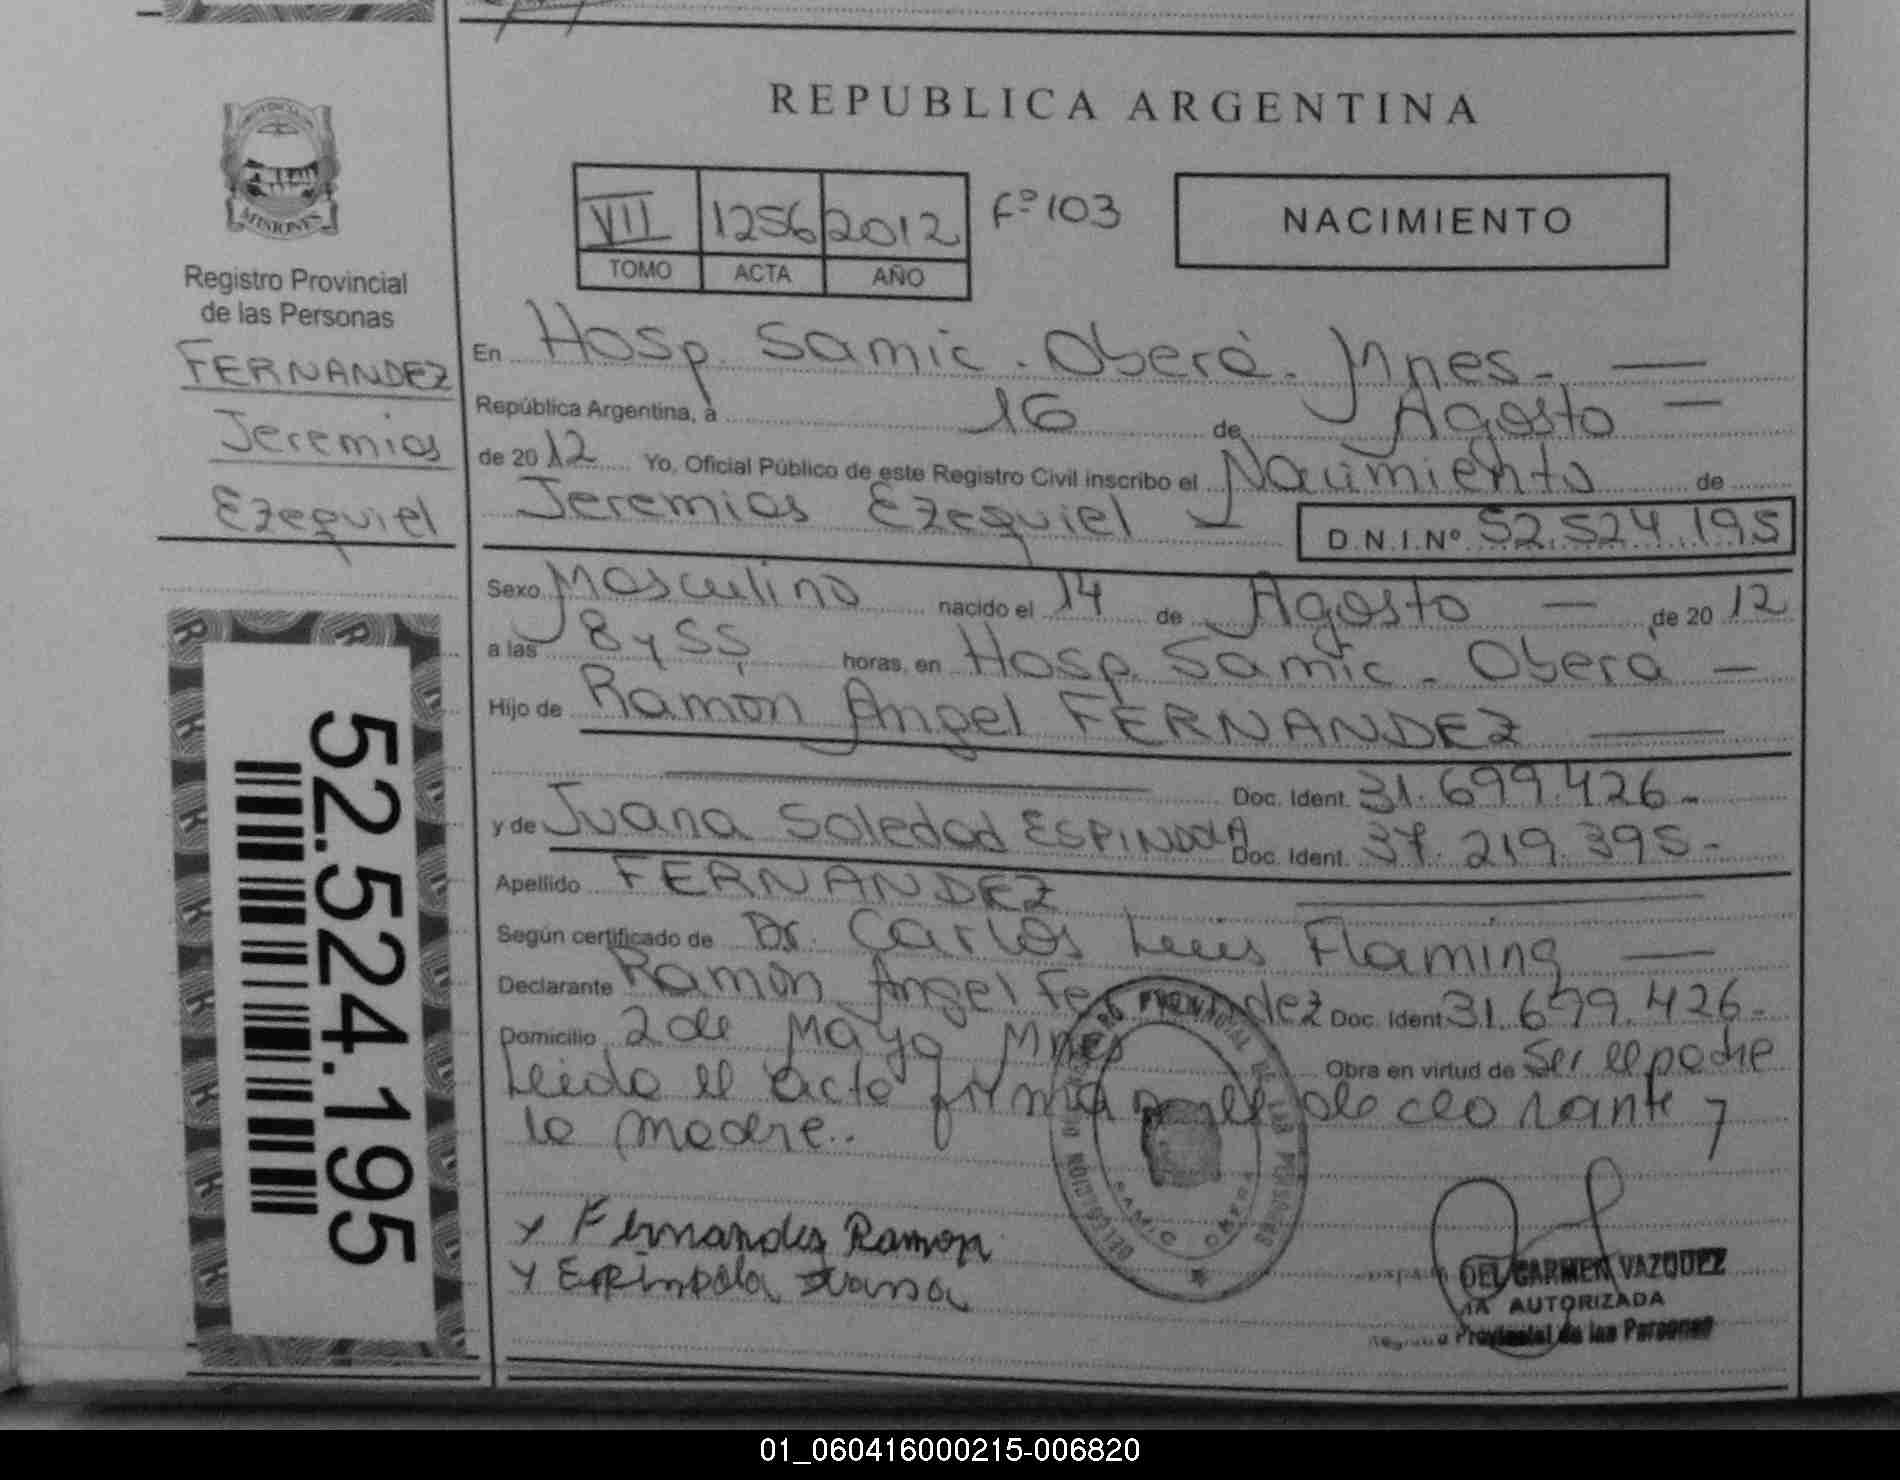 REPUBLICA ARGENTINA
VII 1256 2012 Fº 103
TOMO ACTA AÑO
NACIMIENTO
MISIONES
Registro Provincial
de las Personas
FERNANDEZ
Jeremias
Ezequiel
52.524.195
En Hosp. Samic. Oberá. Mnes.
República Argentina, a 16 de Agosto
de 2012 Yo, Oficial Público de este Registro Civil inscribo el Nacimiento de
Jeremias Ezequiel D.N.I.Nº 52.524.195
Sexo Masculino nacido el 14 de Agosto de 2012
a las 8 y 55 horas, en Hosp. Samic. Oberá
Hijo de Ramon Angel FERNANDEZ
Doc. Ident. 31.699.426
y de Juana Soledad ESPINDOLA Doc. Ident. 37.219.395
Apellido FERNANDEZ
Según certificado de Dr. Carlos Luis Flaming
Declarante Ramon Angel Fernandez Doc. Ident 31.699.426
Domicilio 2 de Mayo Mnes Obra en virtud de Ser el padre
Leida el acta firman el declarante y
la madre.
Fernandez Ramon
Espindola Juana
DEL CARMEN VAZQUEZ
AUTORIZADA
Provincial de las Personas
01_060416000215-006820